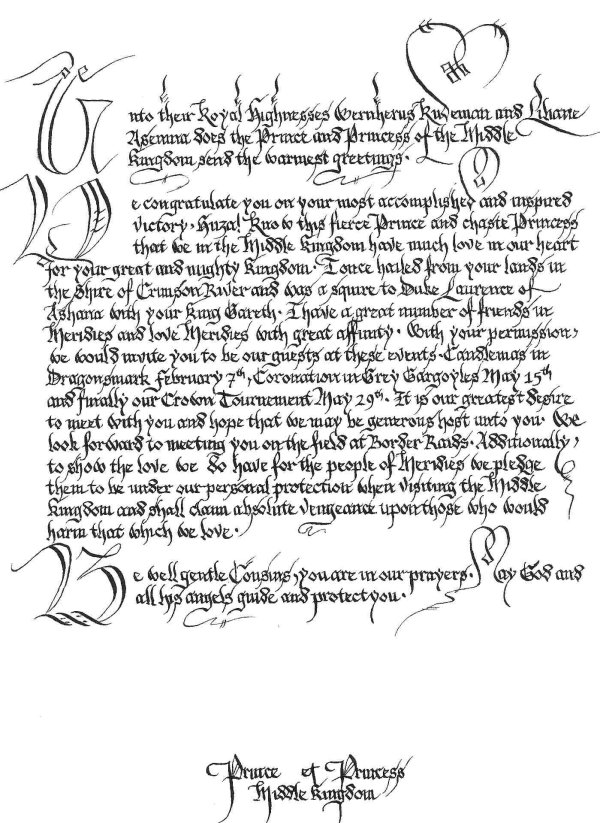 Unto their Royal Highnesses Wernherus Rudeman and Liliane
Asenina does the Prince and Princess of the Middle
Kingdom send the warmest greetings.
We congratulate you on your most accomplished and inspired
victory, Huza! Know this fierce Prince and chaste Princess
that we in the Middle Kingdom have much love in our heart
for your great and mighty kingdom. I once hailed from your lands in
the Shire of Crimson River and was a squire to Duke Laurence of
Ashana with your King Gareth. I have a great number of friends in
Meridies and love Meridies with great affinity. With your permission,
we would invite you to be our guests at these events. Candlemas in
Dragonsmark February 7th, Coronation in Grey Gargoyles May 15th
and finally our Crown Tournement May 29th. It is our greatest desire
to meet with you and hope that we may be generous host unto you. We
look forward to meeting you on the field at Border Raids. Additionally,
to show the love we do have for the people of Meridies we pledge
them to be under our personal protection when visiting the Middle
Kingdom and shall claim absolute vengeance upon those who would
harm that which we love.
Be well gentle Cousins, you are in our prayers. May God and
all hys angels guide and protect you.
Prince et Princess
Middle Kingdom